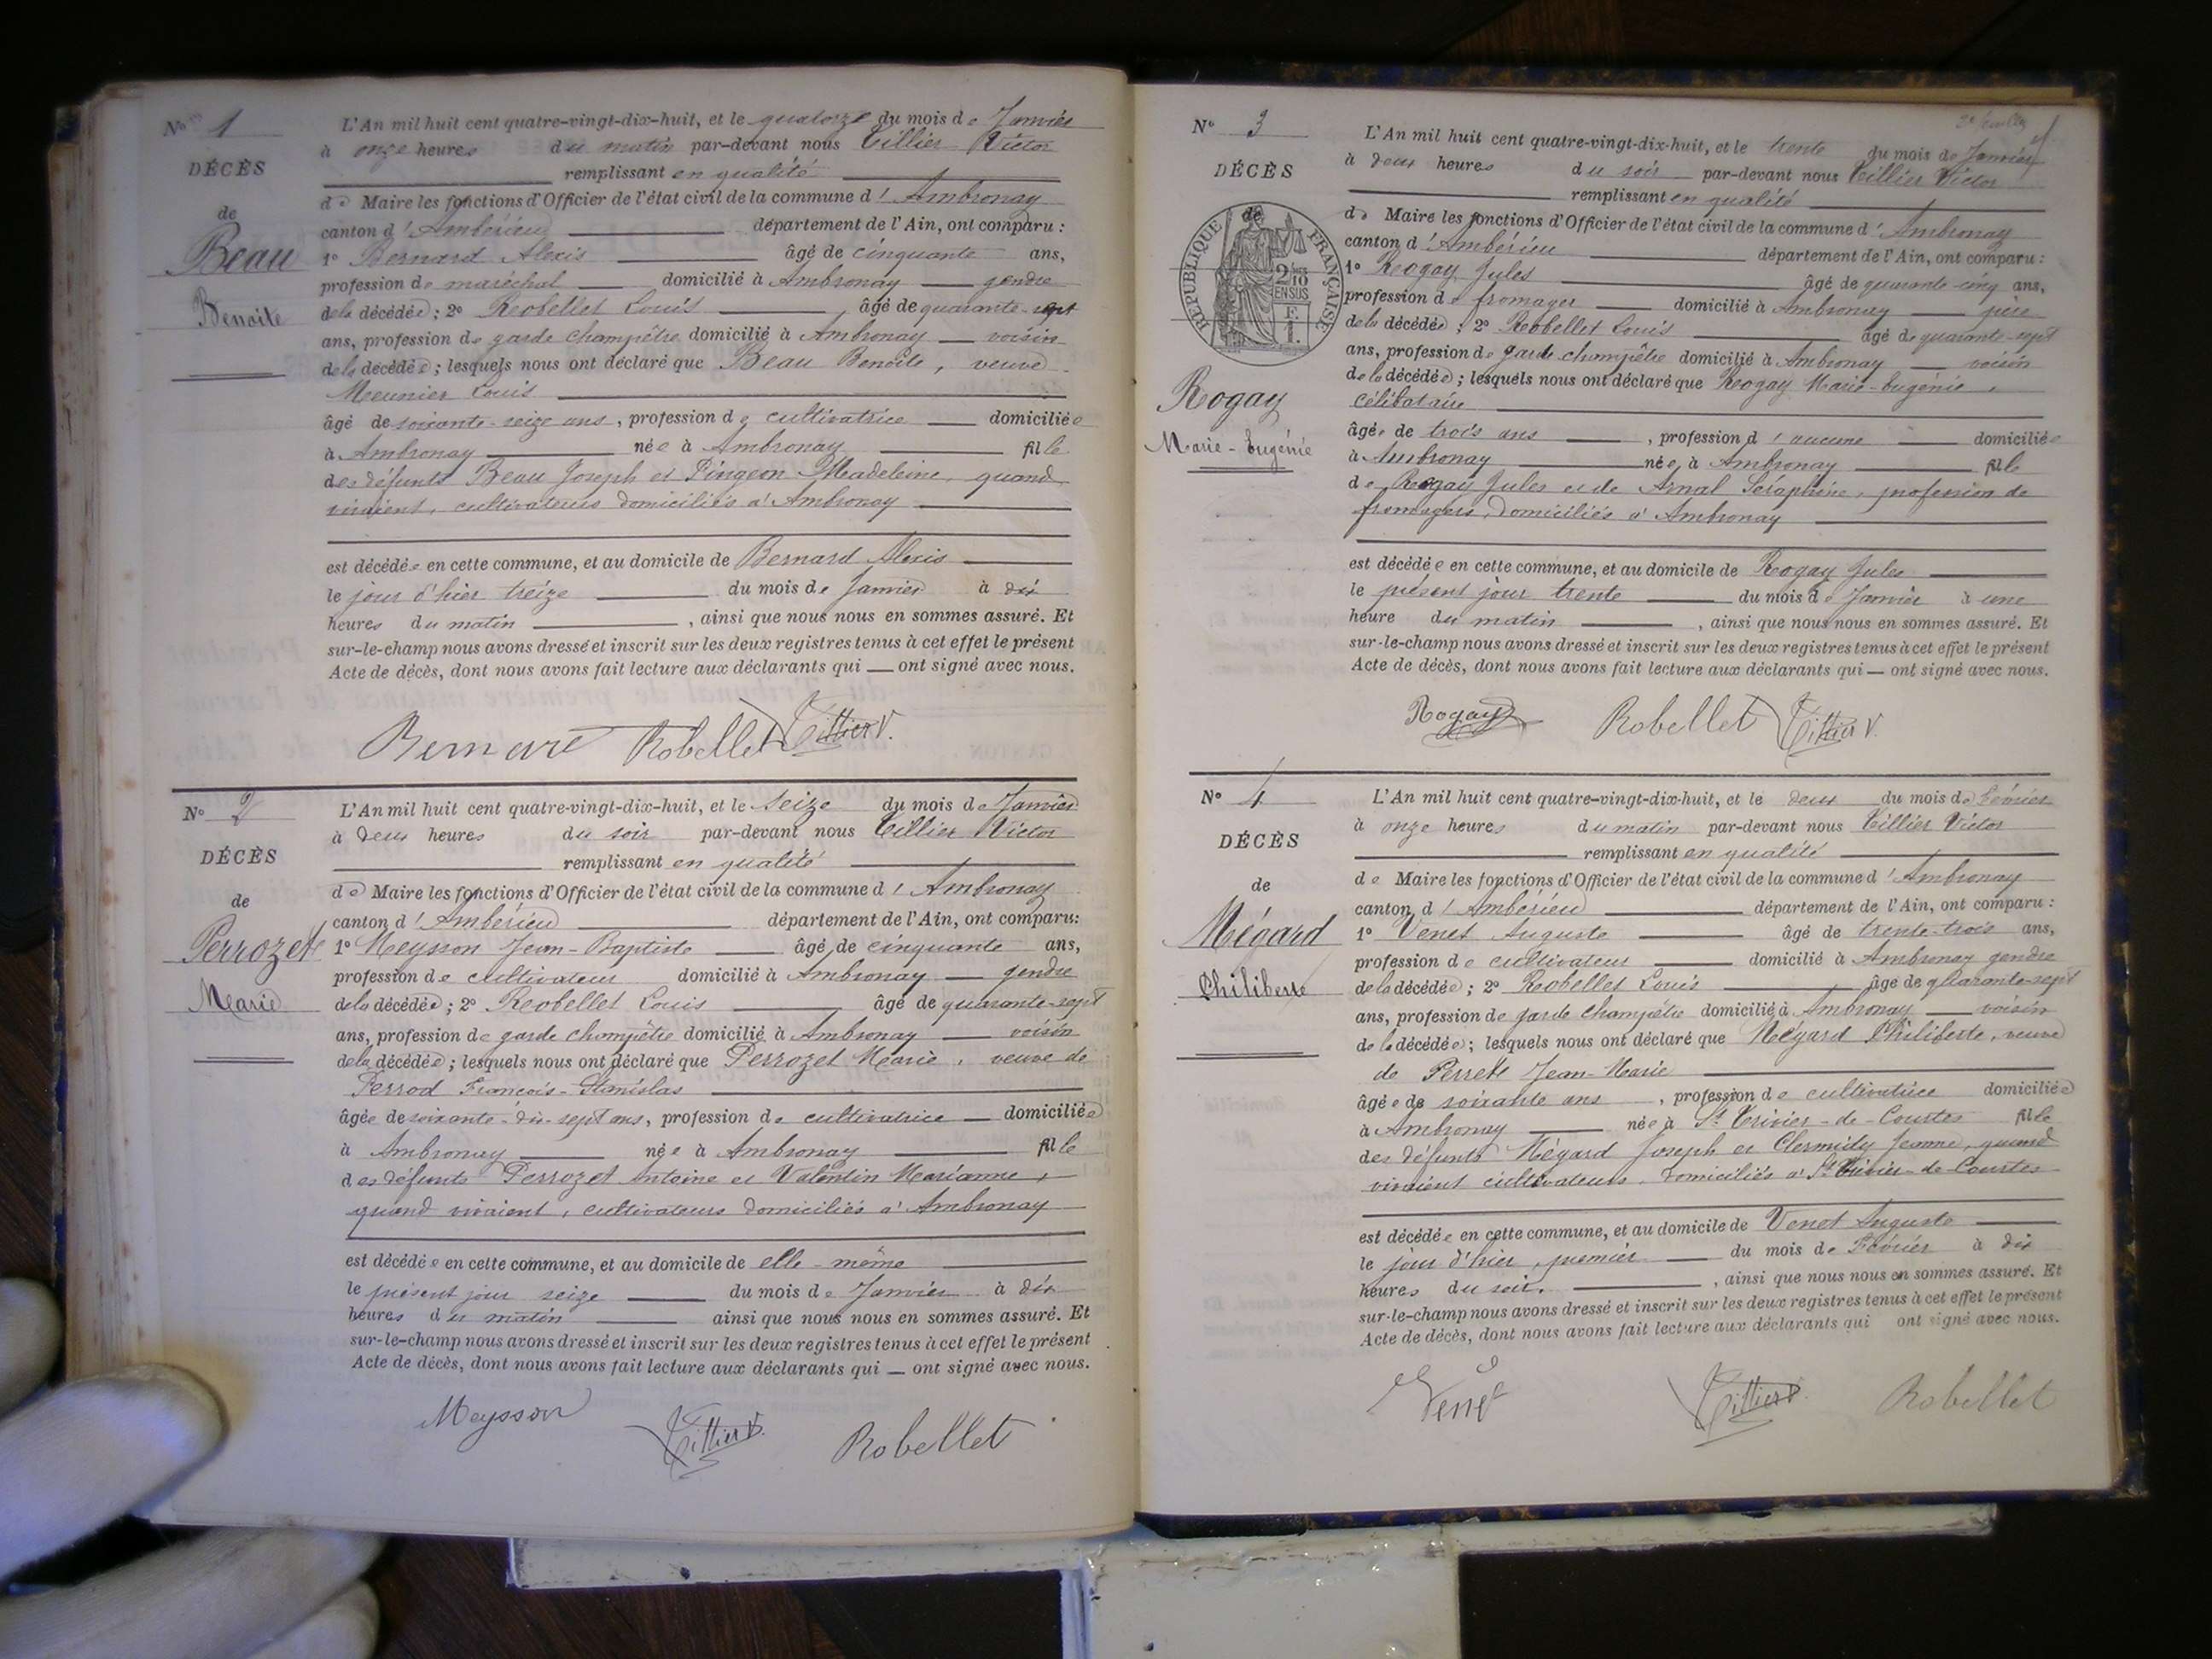 N° 1
DÉCÈS
de
Beau
Benoite
L'An mil huit cent quatre-vingt-dix-huit, et le quatorze du mois de Janvier
à onze heures du matin par-devant nous Tillier Victor
remplissant en qualité
de Maire les fonctions d'Officier de l'état civil de la commune d'Ambronay
canton d'Ambérieu département de l'Ain, ont comparu :
1° Bernard Alexis âgé de cinquante ans,
profession de maréchal domicilié à Ambronay gendre
de la décédée ; 2° Robellet Louis âgé de quarante-sept
ans, profession de garde champêtre domicilié à Ambronay voisin
de la décédée ; lesquels nous ont déclaré que Beau Benoîte, veuve
Meunier Louis
âgé de soixante-seize ans, profession de cultivatrice domiciliée
à Ambronay née à Ambronay fille
des défunts Beau Joseph et Pingeon Madeleine, quand
vivaient, cultivateurs domiciliés à Ambronay
est décédée en cette commune, et au domicile de Bernard Alexis
le jour d'hier treize du mois de Janvier à dix
heures du matin, ainsi que nous nous en sommes assuré. Et
sur-le-champ nous avons dressé et inscrit sur les deux registres tenus à cet effet le présent
Acte de décès, dont nous avons fait lecture aux déclarants qui — ont signé avec nous.
Bernard Robellet Tillier V.
N° 2
DÉCÈS
de
Perrozet
Marie
L'An mil huit cent quatre-vingt-dix-huit, et le seize du mois de Janvier
à deux heures du soir par-devant nous Tillier Victor
remplissant en qualité
de Maire les fonctions d'Officier de l'état civil de la commune d'Ambronay
canton d'Ambérieu département de l'Ain, ont comparu:
1° Meysson Jean-Baptiste âgé de cinquante ans,
profession de cultivateur domicilié à Ambronay gendre
de la décédée ; 2° Robellet Louis âgé de quarante-sept
ans, profession de garde champêtre domicilié à Ambronay voisin
de la décédée ; lesquels nous ont déclaré que Perrozet Marie, veuve de
Perrod François-Stanislas
âgée de soixante-dix-sept ans, profession de cultivatrice domiciliée
à Ambronay née à Ambronay fille
des défunts Perrozet Antoine et Valentin Marianne,
quand vivaient, cultivateurs domiciliés à Ambronay
est décédée en cette commune, et au domicile de elle-même
le présent jour seize du mois de Janvier à dix
heures du matin ainsi que nous nous en sommes assuré. Et
sur-le-champ nous avons dressé et inscrit sur les deux registres tenus à cet effet le présent
Acte de décès, dont nous avons fait lecture aux déclarants qui — ont signé avec nous.
Meysson Tillier V. Robellet
N° 3
DÉCÈS
de
RÉPUBLIQUE FRANÇAISE
2/10
EN SUS
F.
1.
Rogay
Marie-Eugénie
L'An mil huit cent quatre-vingt-dix-huit, et le trente du mois de Janvier
à deux heures du soir par-devant nous Tillier Victor
remplissant en qualité
de Maire les fonctions d'Officier de l'état civil de la commune d'Ambronay
canton d'Ambérieu département de l'Ain, ont comparu :
1° Rogay Jules âgé de quarante-cinq ans,
profession de fromager domicilié à Ambronay père
de la décédée ; 2° Robellet Louis âgé de quarante-sept
ans, profession de garde champêtre domicilié à Ambronay voisin
de la décédée ; lesquels nous ont déclaré que Rogay Marie-Eugénie,
célibataire
âgée de trois ans, profession d'aucune domiciliée
à Ambronay née à Ambronay fille
de Rogay Jules et de Arnal Séraphine, profession de
fromagers, domiciliés à Ambronay
est décédée en cette commune, et au domicile de Rogay Jules
le présent jour trente du mois de Janvier à une
heure du matin, ainsi que nous nous en sommes assuré. Et
sur-le-champ nous avons dressé et inscrit sur les deux registres tenus à cet effet le présent
Acte de décès, dont nous avons fait lecture aux déclarants qui — ont signé avec nous.
Rogay Robellet Tillier V.
N° 4
DÉCÈS
de
Mégard
Philiberte
L'An mil huit cent quatre-vingt-dix-huit, et le deux du mois de Février
à onze heures du matin par-devant nous Tillier Victor
remplissant en qualité
de Maire les fonctions d'Officier de l'état civil de la commune d'Ambronay
canton d'Ambérieu département de l'Ain, ont comparu :
1° Venet Auguste âgé de trente-trois ans,
profession de cultivateur domicilié à Ambronay gendre
de la décédée ; 2° Robellet Louis âge de quarante-sept
ans, profession de garde champêtre domicilié à Ambronay voisin
de la décédée ; lesquels nous ont déclaré que Mégard Philiberte, veuve
de Perret Jean-Marie
âgée de soixante ans, profession de cultivatrice domiciliée
à Ambronay née à St Trivier-de-Courtes fille
des défunts Mégard Joseph et Clermidy Jeanne, quand
vivaient cultivateurs, domiciliés à St Trivier-de-Courtes
est décédée en cette commune, et au domicile de Venet Auguste
le jour d'hier, premier du mois de Février à dix
heures du soir, ainsi que nous nous en sommes assuré. Et
sur-le-champ nous avons dressé et inscrit sur les deux registres tenus à cet effet le présent
Acte de décès, dont nous avons fait lecture aux déclarants qui ont signé avec nous.
Venet Tillier V. Robellet